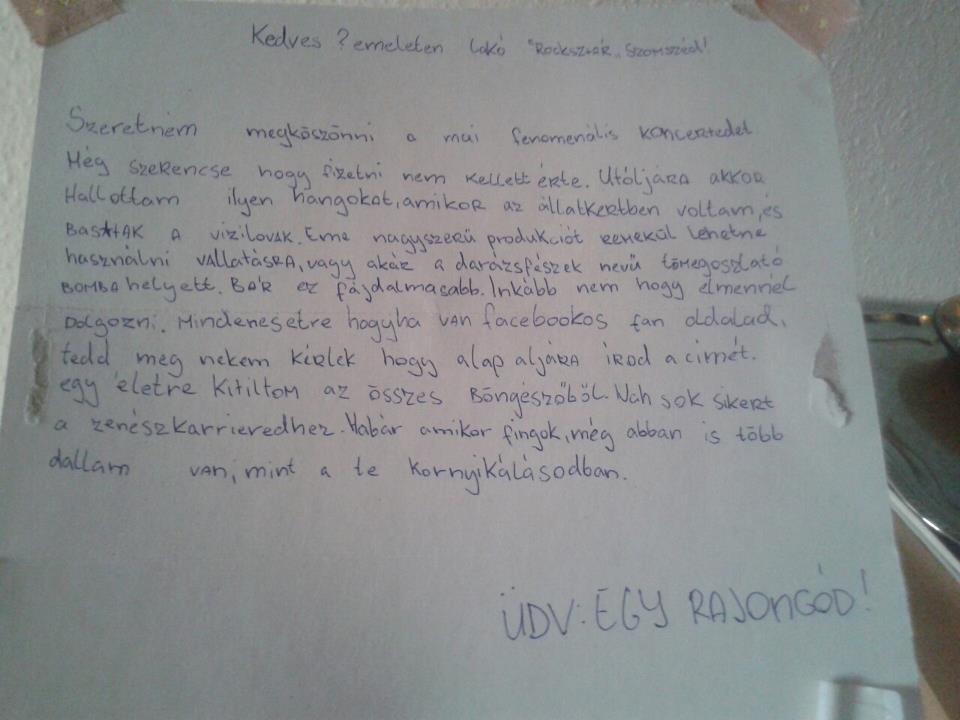 Kedves ? emeleten lakó "Rocksztár" szomszéd!
Szeretném megköszönni a mai fenomenális koncertedet
Még szerencse hogy fizetni nem kellett érte. Utóljára akkor
Hallottam ilyen hangokat, amikor az állatkertben voltam, és
BASZTAK A vizilovak. Eme nagyszerű produkciót remekül lehetne
használni vallatásra, vagy akár a darázsfészek nevű tömegoszlató
BOMBA helyett. BÁR ez fájdalmasabb. Inkább nem hogy elmennél
Dolgozni. Mindenesetre hogyha van facebookos fan oldalad,
tedd meg nekem kérlek hogy a lap aljára írod a cimét.
egy életre kitiltom az összes Böngészőből. Nah sok sikert
a zenészkarrieredhez. Habár amikor fingok, még abban is több
dallam van, mint a te kornyikálásodban.
ÜDV: EGY RAJONGÓD!